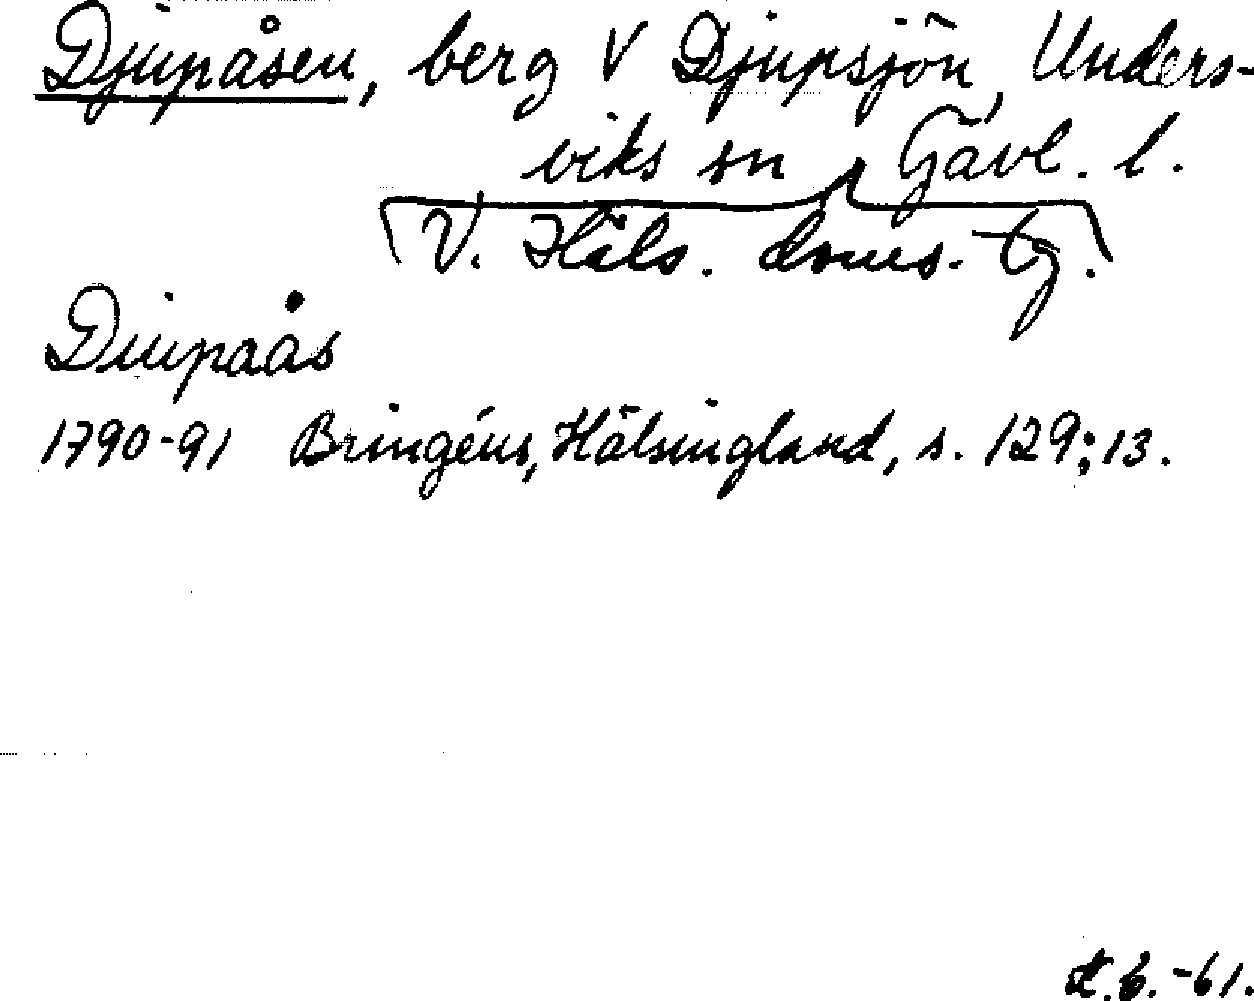 Djupåsen, berg V Djupsjön, Unders-
viks sn Gävl. l.
V. Häls. doms. tg.
Diupaås
1790-91 Bringéus, Hälsingland, s. 129:13.
-61.